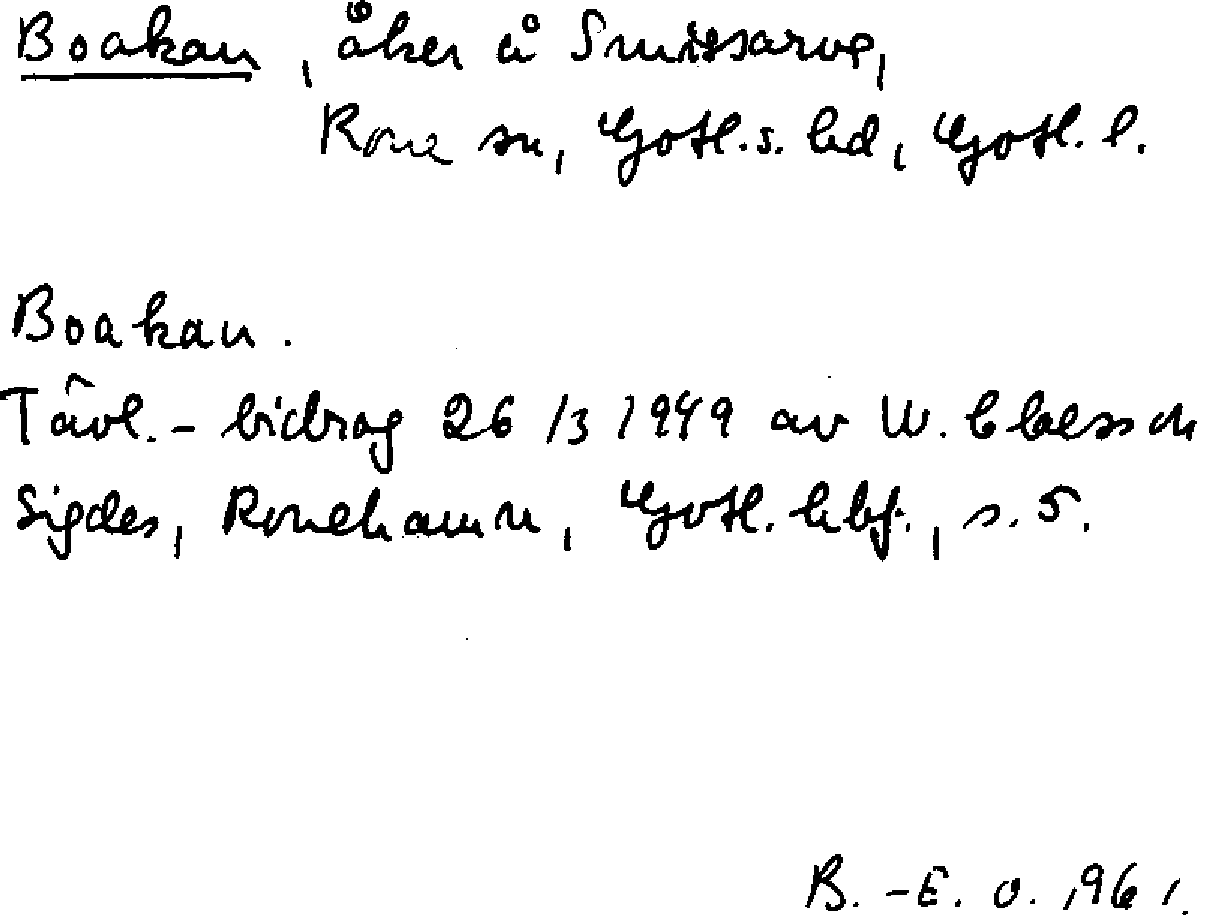 Boakan, åker å Smissarve,
Rone sn, Gotl. s. hd, Gotl. l.
Boakan.
Tävl.-bidrag 26/3 1949 av W. Claesson
Sigdes, Ronehamn, Gotl. hbf., s. 5.
B.-E. O. 1961.